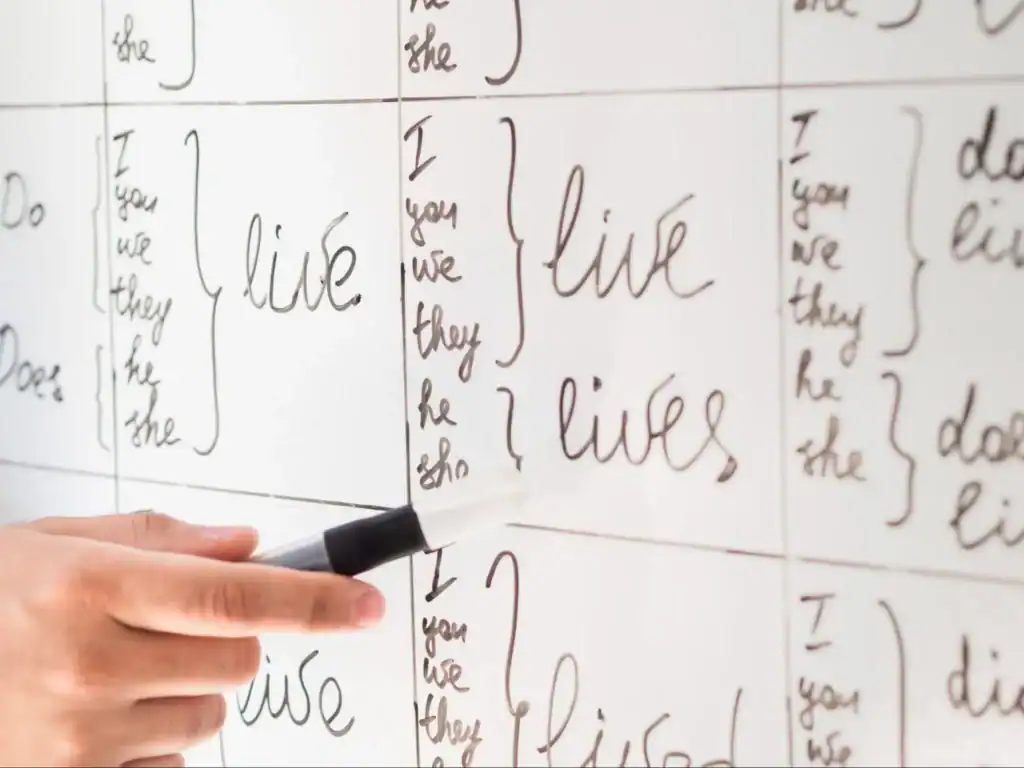 she
he
she
she
Do
I
you
we
they
he
she
live
Does
I
you
we
they
live
he
she
lives
I
you
we
they
he
she
do
does
live
I
you
we
they
lived
I
you
we